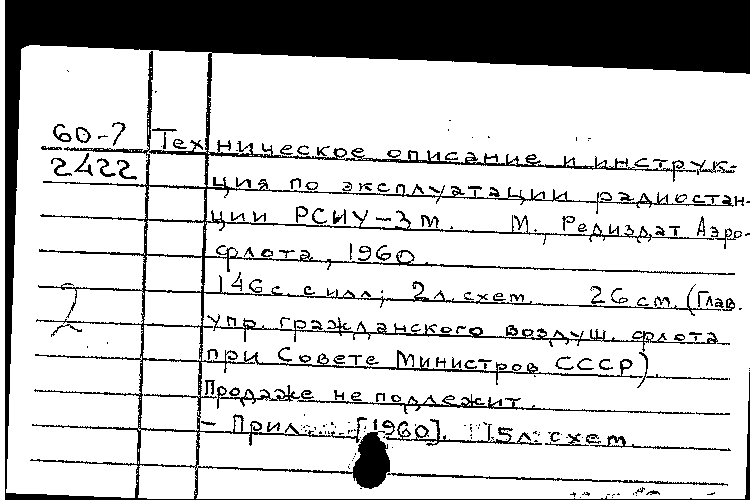 60-7 Техническое описание и инструк-
2422 ция по эксплуатации радиостан-
ции РСИУ-3М. М., Редиздат Аэро-
флота, 1960.
146 с. с илл; 2 л. схем. 26 см. (Глав.
2 упр. гражданского воздуш. флота
при Совете Министров СССР).
Продаже не подлежит.
- Прил. [1960]. 15 л. схем.